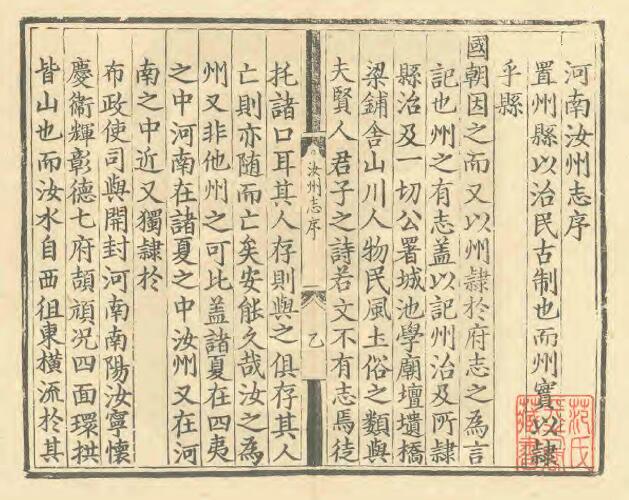 河南汝州志序
置州縣以治民古制也而州實以隸
乎縣
國朝因之而又以州隸於府志之為言
記也州之有志盖以記州治及所隸
縣治及一切公署城池學廟壇壝橋
梁鋪舍山川人物民風土俗之類與
夫賢人君子之詩若文不有志焉徒
汝州志序
乙
托諸口耳其人存則與之俱存其人
亡則亦随而亡矣安能久哉汝之為
州又非他州之可比盖諸夏在四夷
之中河南在諸夏之中汝州又在河
南之中近又獨隸於
布政使司與開封河南南陽汝寧懷
慶衛輝彰德七府頡頏况四面環拱
皆山也而汝水自西徂東横流於其